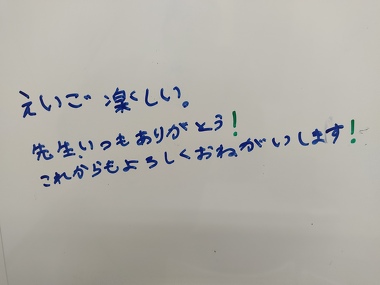 えいご 楽しい。
先生、いつもありがとう!
これからもよろしくおねがいします!